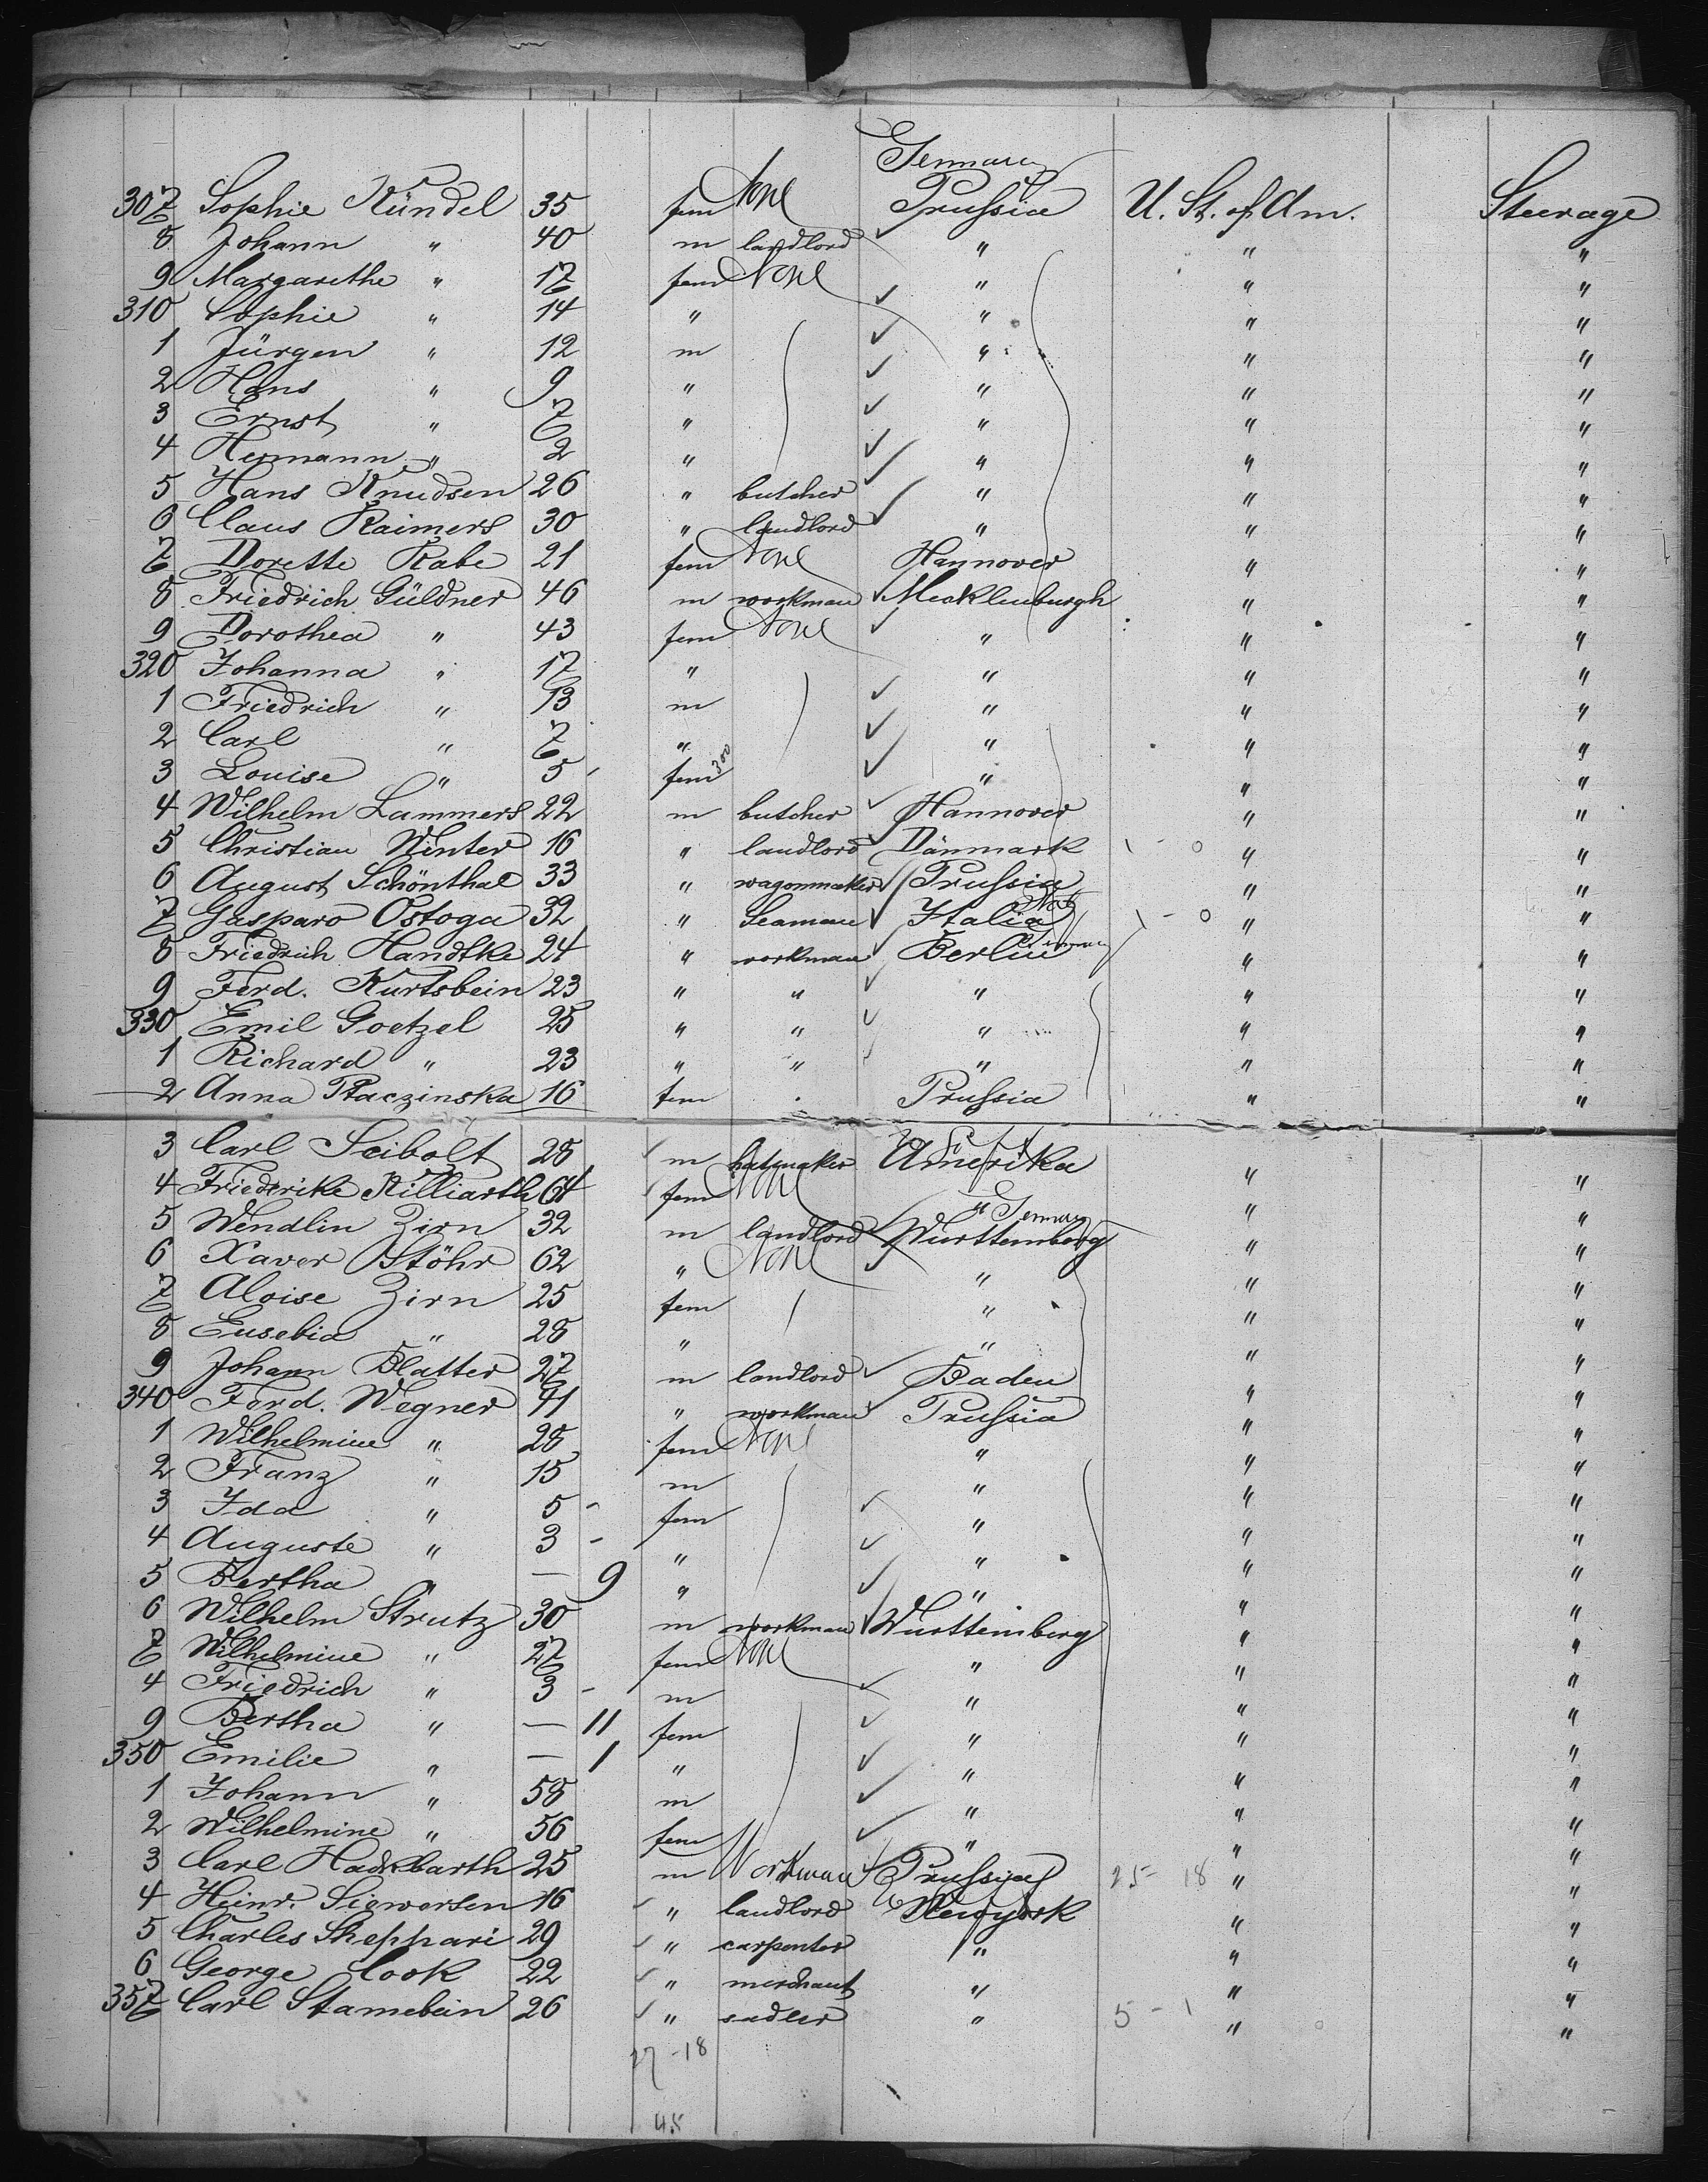 Germany
307 Sophie Kündel 35 fem None Prussia U. St. of Am. Steerage
8 Johann " 40 m landlord " " "
9 Margarethe " 17 fem None " " "
310 Sophie " 14 " " " "
1 Jürgen " 12 m " " "
2 Hans " 9 " " " "
3 Ernst " 7 " " " "
4 Hermann " 2 " " " "
5 Hans Knudsen 26 " butcher " " "
6 Claus Raimers 30 " landlord " " "
7 Dorette Rabe 21 fem None Hannover " "
8 Friedrich Güldner 46 m workman Mecklenburgh " "
9 Dorothea " 43 fem None " " "
320 Johanna " 17 " " " "
1 Friedrich " 13 m " " "
2 Carl " 7 " " " "
3 Louise " 5 - fem 300 " " "
4 Wilhelm Lammers 22 m butcher Hannover " "
5 Christian Winter 16 " landlord Dänmark 1 - 0 " "
6 August Schönthal 33 " wagonmaker Prussia " "
7 Gasparo Ostoga 32 " Seaman Italia 1 - 0 " "
Germany
8 Friedrich Handtke 24 " workman Berlin " "
9 Ferd. Kurtsbein 23 " " " " "
330 Emil Goetzel 25 " " " " "
1 Richard " 23 " " " " "
2 Anna Placzinska 16 fem Prussia " "
3 Carl Seibolt 28 m hatmaker Amerika " "
4 Friederike Killiarth 64 fem None " " "
Germany
5 Wendlin Zirn 32 m landlord Württemberg " "
6 Xaver Stöhr 62 " None " " "
7 Aloise Zirn 25 fem " " "
8 Eusebia " 28 " " " "
9 Johann Blatter 27 m landlord Baden " "
340 Ferd. Wegner 41 " workman Prussia " "
1 Wilhelmine " 28 fem None " " "
2 Franz " 15 m " " "
3 Ida " 5 - fem " " "
4 Auguste " 3 - " " " "
5 Bertha — 9 " " " "
6 Wilhelm Strutz 30 m workman Württemberg " "
7 Wilhelmine " 27 fem None " " "
4 Friedrich " 3 - m " " "
9 Bertha " — 11 fem " " "
350 Emilie " — 1 " " " "
1 Johann " 58 m " " "
2 Wilhelmine " 56 fem " " "
3 Carl Hackbarth 25 m Workman Prussia 25 - 18 " "
4 Heinr. Siewersen 16 " landlord Newyork " "
5 Charles Sheppari 29 " carpenter " " "
6 George Cook 22 " merchant " " "
357 Carl Stamebein 26 " sadler " 5 - 1 " "
27 - 18
45